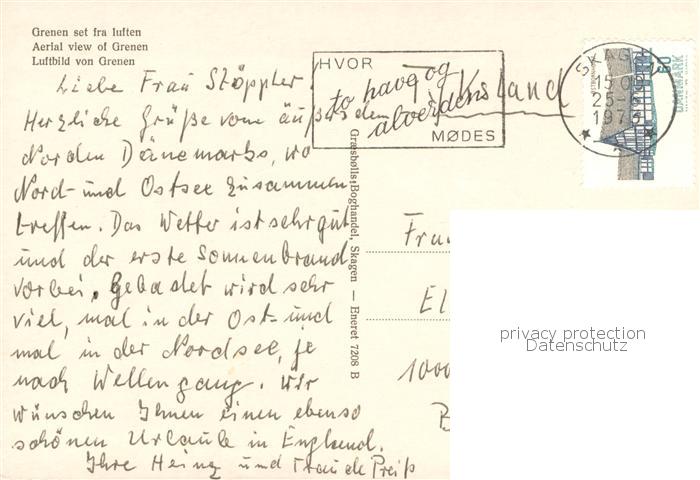 Grenen set fra luften
Aerial view of Grenen
Luftbild von Grenen
Liebe Frau Stöppler
Herzliche Grüße vom äußersten
Norden Dänemarks, wo
Nord- und Ostsee zusammen
treffen. Das Wetter ist sehr gut
und der erste Sonnenbrand
vorbei. Gebadet wird sehr
viel, mal in der Ost- und
mal in der Nordsee, je
nach Wellengang. Wir
wünschen Ihnen einen ebenso
schönen Urlaub in England.
Ihre Heinz und Traude Preiß
Græsbølls Boghandel, Skagen — Eneret 7208 B
HVOR
to have og
alverdens
MØDES
SKAGEN
15 00
25-
197
60
DANMARK
Frau
El
1000
B
privacy protection
Datenschutz